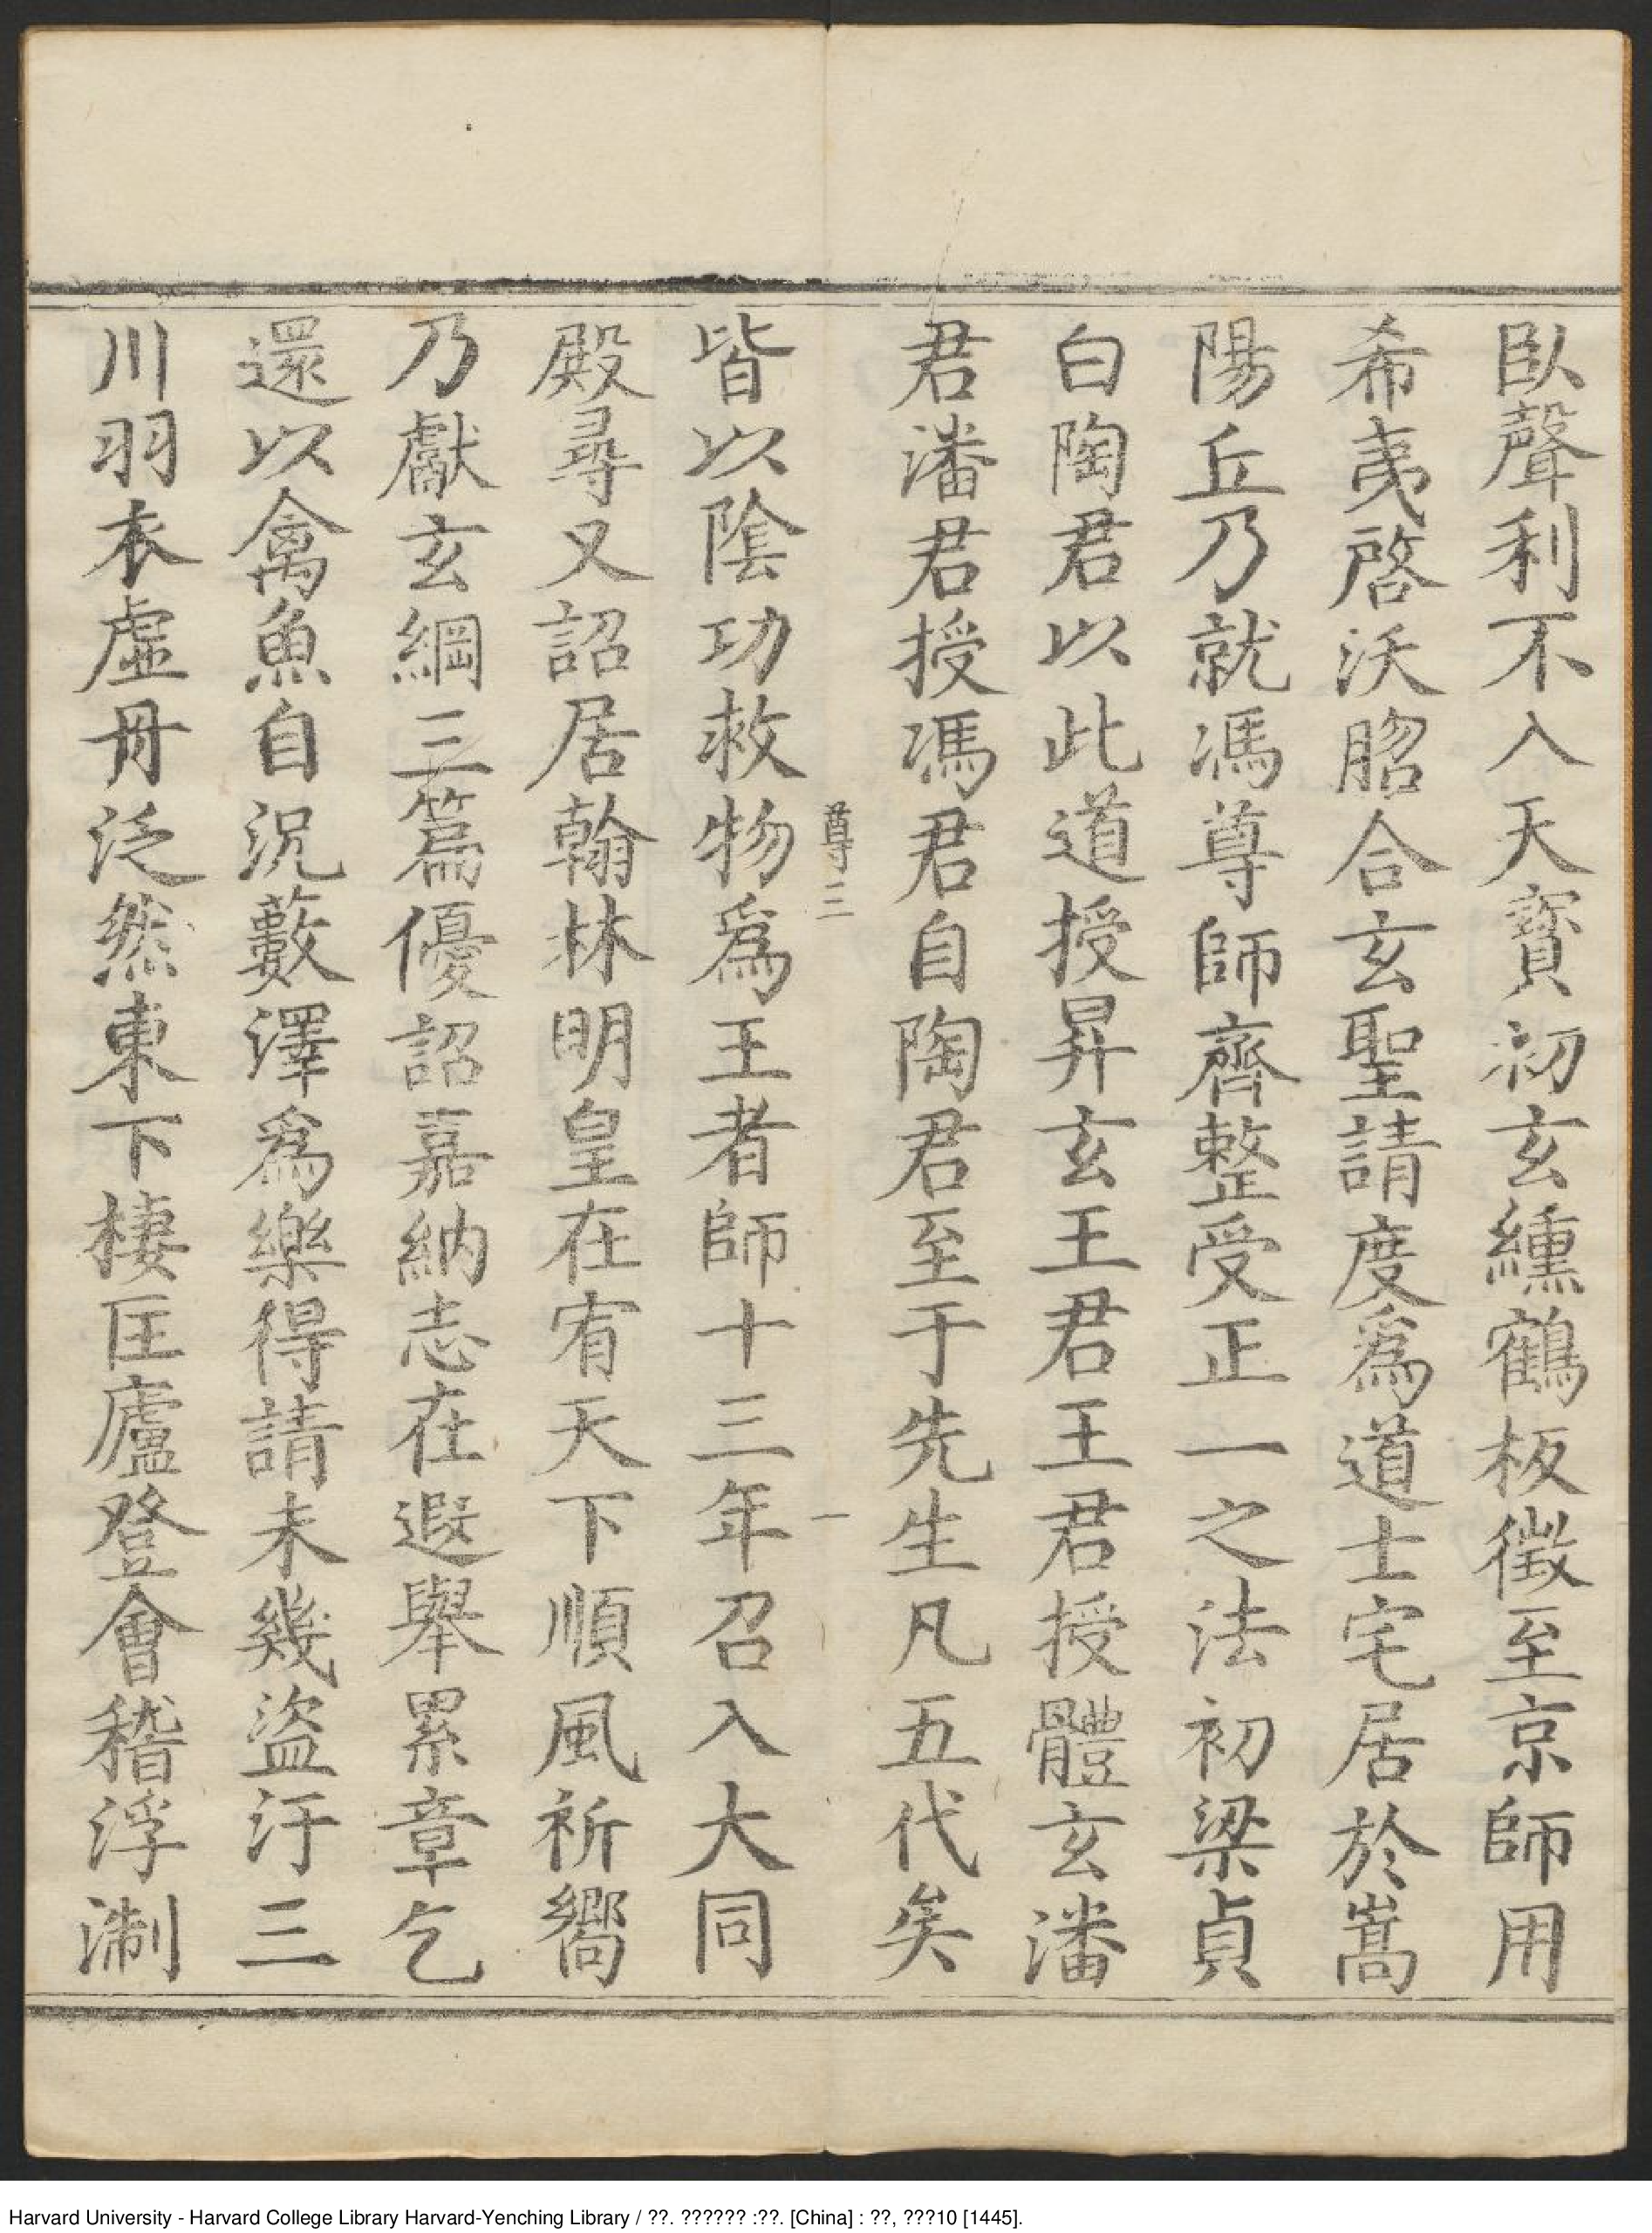 臥聲利不入天寶初玄纁鶴板徵至京師用
希夷啓沃䏚合玄聖請度爲道士宅居於嵩
陽丘乃就馮尊師齊整受正一之法初梁貞
白陶君以此道授昇玄王君王君授體玄潘
君潘君授馮君自陶君至于先生凡五代矣
尊三
一
皆以陰功救物爲王者師十三年召入大同
殿尋又詔居翰林明皇在宥天下順風祈嚮
乃獻玄綱三篇優詔嘉納志在遐舉累章乞
還以禽魚自況藪澤爲樂得請未幾盜汙三
川羽衣虛舟泛然東下棲匡廬登會稽浮淛